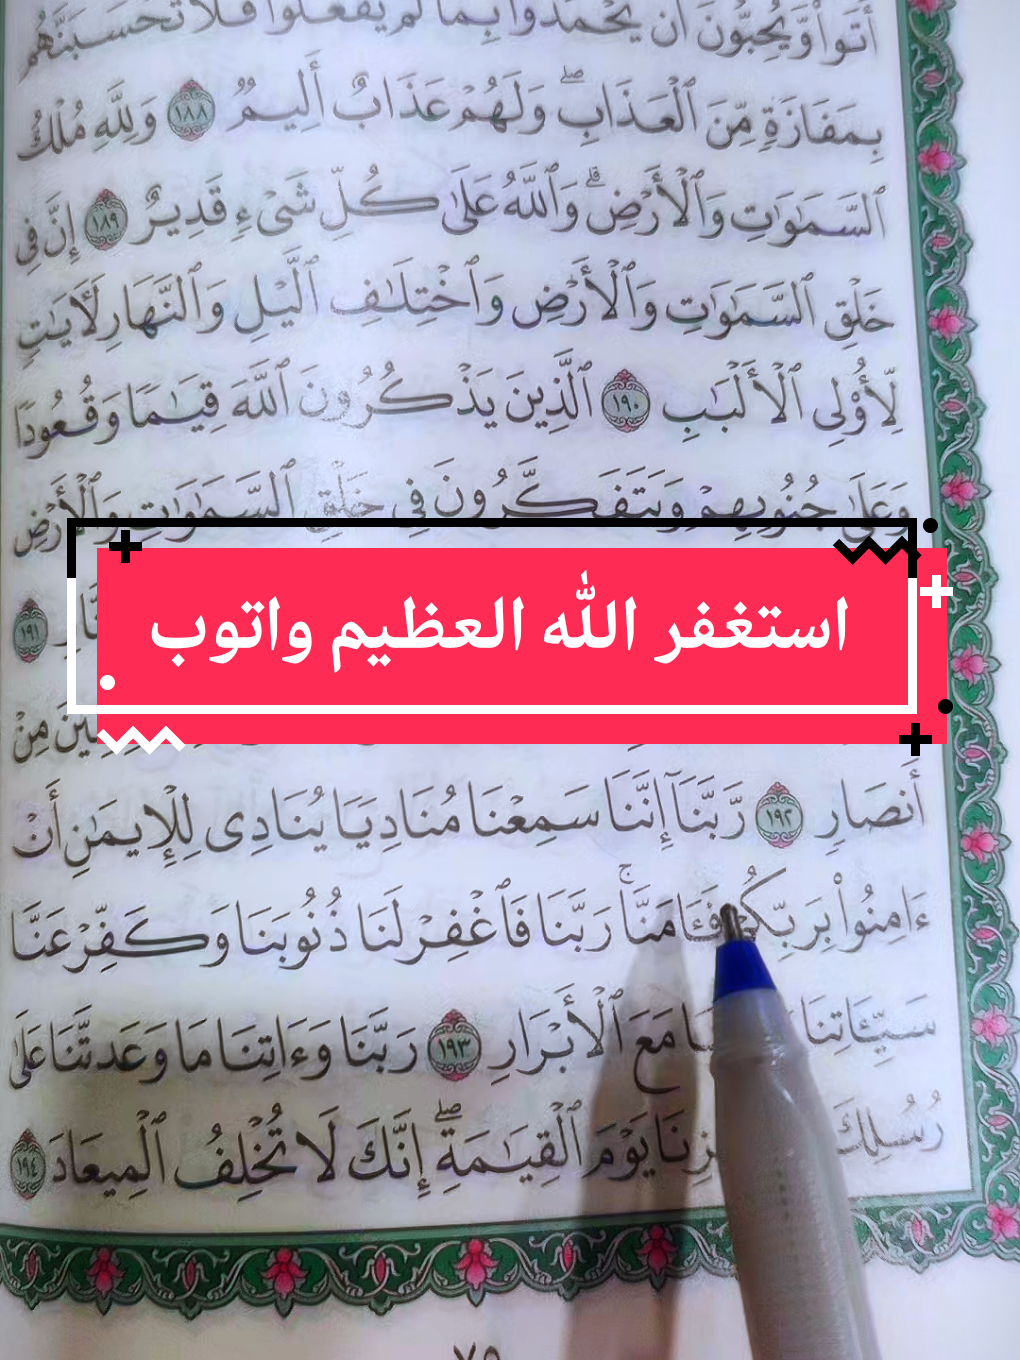 أَتَوا۟ وَّيُحِبُّونَ أَن يُحْمَدُوا۟ بِمَا لَمْ يَفْعَلُوا۟ فَلَا تَحْسَبَنَّهُم
بِمَفَازَةٍ مِّنَ ٱلْعَذَابِ ۖ وَلَهُمْ عَذَابٌ أَلِيمٌ ١٨٨ وَلِلَّهِ مُلْكُ
ٱلسَّمَٰوَٰتِ وَٱلْأَرْضِ ۗ وَٱللَّهُ عَلَىٰ كُلِّ شَىْءٍ قَدِيرٌ ١٨٩ إِنَّ فِى
خَلْقِ ٱلسَّمَٰوَٰتِ وَٱلْأَرْضِ وَٱخْتِلَٰفِ ٱلَّيْلِ وَٱلنَّهَارِ لَءَايَٰتٍ
لِّأُو۟لِى ٱلْأَلْبَٰبِ ١٩٠ ٱلَّذِينَ يَذْكُرُونَ ٱللَّهَ قِيَٰمًا وَقُعُودًا
وَعَلَىٰ جُنُوبِهِمْ وَيَتَفَكَّرُونَ فِى خَلْقِ ٱلسَّمَٰوَٰتِ وَٱلْأَرْضِ
١٩١
استغفر الله العظيم واتوب
مِنْ
أَنصَارٍ ١٩٢ رَّبَّنَآ إِنَّنَا سَمِعْنَا مُنَادِيًا يُنَادِى لِلْإِيمَٰنِ أَنْ
ءَامِنُوا۟ بِرَبِّكُمْ فَـَٔامَنَّا ۚ رَبَّنَا فَٱغْفِرْ لَنَا ذُنُوبَنَا وَكَفِّرْ عَنَّا
سَيِّـَٔاتِنَا مَعَ ٱلْأَبْرَارِ ١٩٣ رَبَّنَا وَءَاتِنَا مَا وَعَدتَّنَا عَلَىٰ
رُسُلِكَ يَوْمَ ٱلْقِيَٰمَةِ ۖ إِنَّكَ لَا تُخْلِفُ ٱلْمِيعَادَ ١٩٤
٧٥